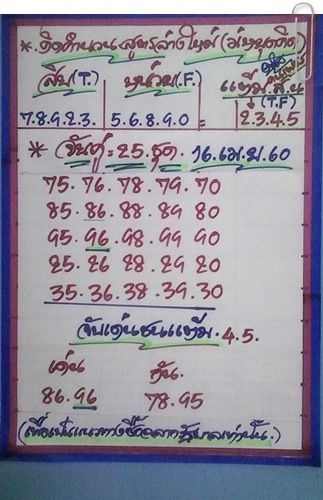 *. คิดคำนวน สูตรล่างใหม่ (
สิบ(T.) หน่วย(.F.) แต้ม.
(T.F)
7.8.9.2.3. 5.6.8.9.0 = 2.3.4.5
* จับคู่ = 25.ชุด. 16.เม.ย.60
75.76.78.79.70
85.86.88.89 80
95.96.98.99 90
25.26 28.29 20
35.36.38.39.30
จับเด่นชนแต้ม.4.5.
เด่น กัน.
86.96 78.95
(เพื่อเป็นแนวทางซื้อฉลากรัฐบาลเท่านั้น.)